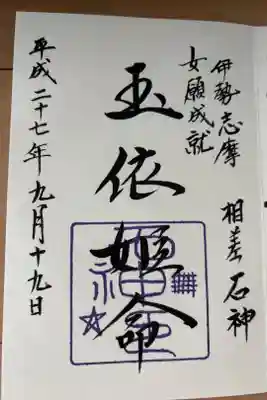 伊勢志摩 相差 石神
女願成就
玉依姫命
平成二十七年九月十九日